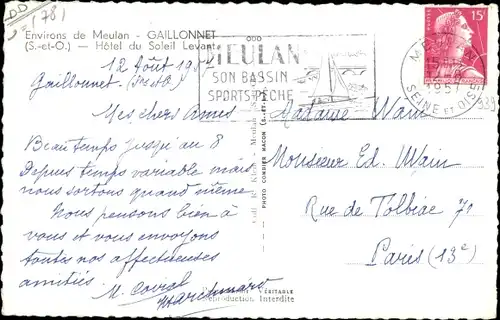 (78)
Environs de Meulan - GAILLONNET
(S.-et-O.) - Hôtel du Soleil Levant
MEULAN
SON BASSIN
SPORTS-PÊCHE
15F
SEINE ET OISE
12 Août 19
Gaillonnet (S et O)
Mes chers Amis
Beau temps jusqu'au 8
Depuis temps variable mais
nous sortons quand même.
Nous pensons bien à
vous et vous envoyons
toutes nos affectueuses
amitiés.
PHOTO COMBIER MACON (S.-ET-L.)
Madame Wain
Monsieur Ed. Wain
Rue de Tolbiac 71
Paris (13e)
VÉRITABLE
Reproduction Interdite